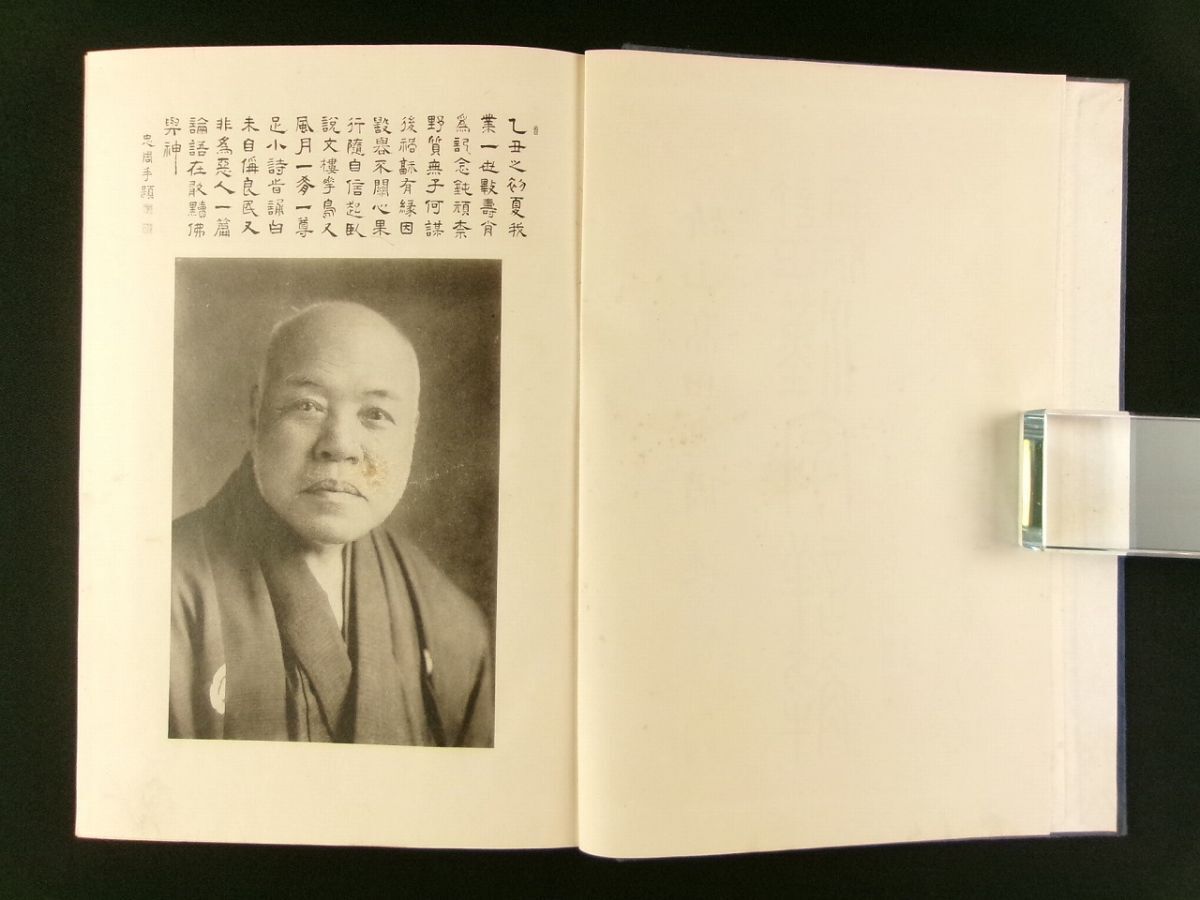 乙丑之初夏我
業一世壽肖
為記念鈍頑柰
野質無子何謀
後禍有緣因
毀譽不關心果
行隨自信起臥
説文樓學鳥又
風月一肴一尊
足小詩皆誦白
未自偁良民又
非為惡人一篇
論語在敢黷佛
與神
忠手題